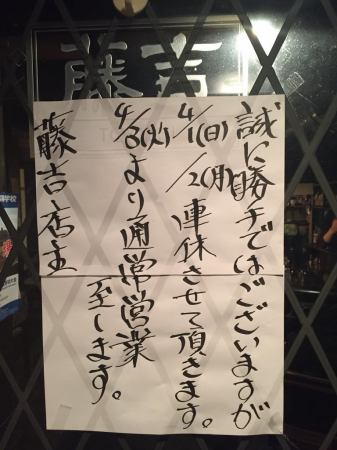 藤吉
誠に勝手ではございますが
4/1(日)
/2(月)連休させて頂きます。
4/3(火)より通常営業
至します。
藤吉店主